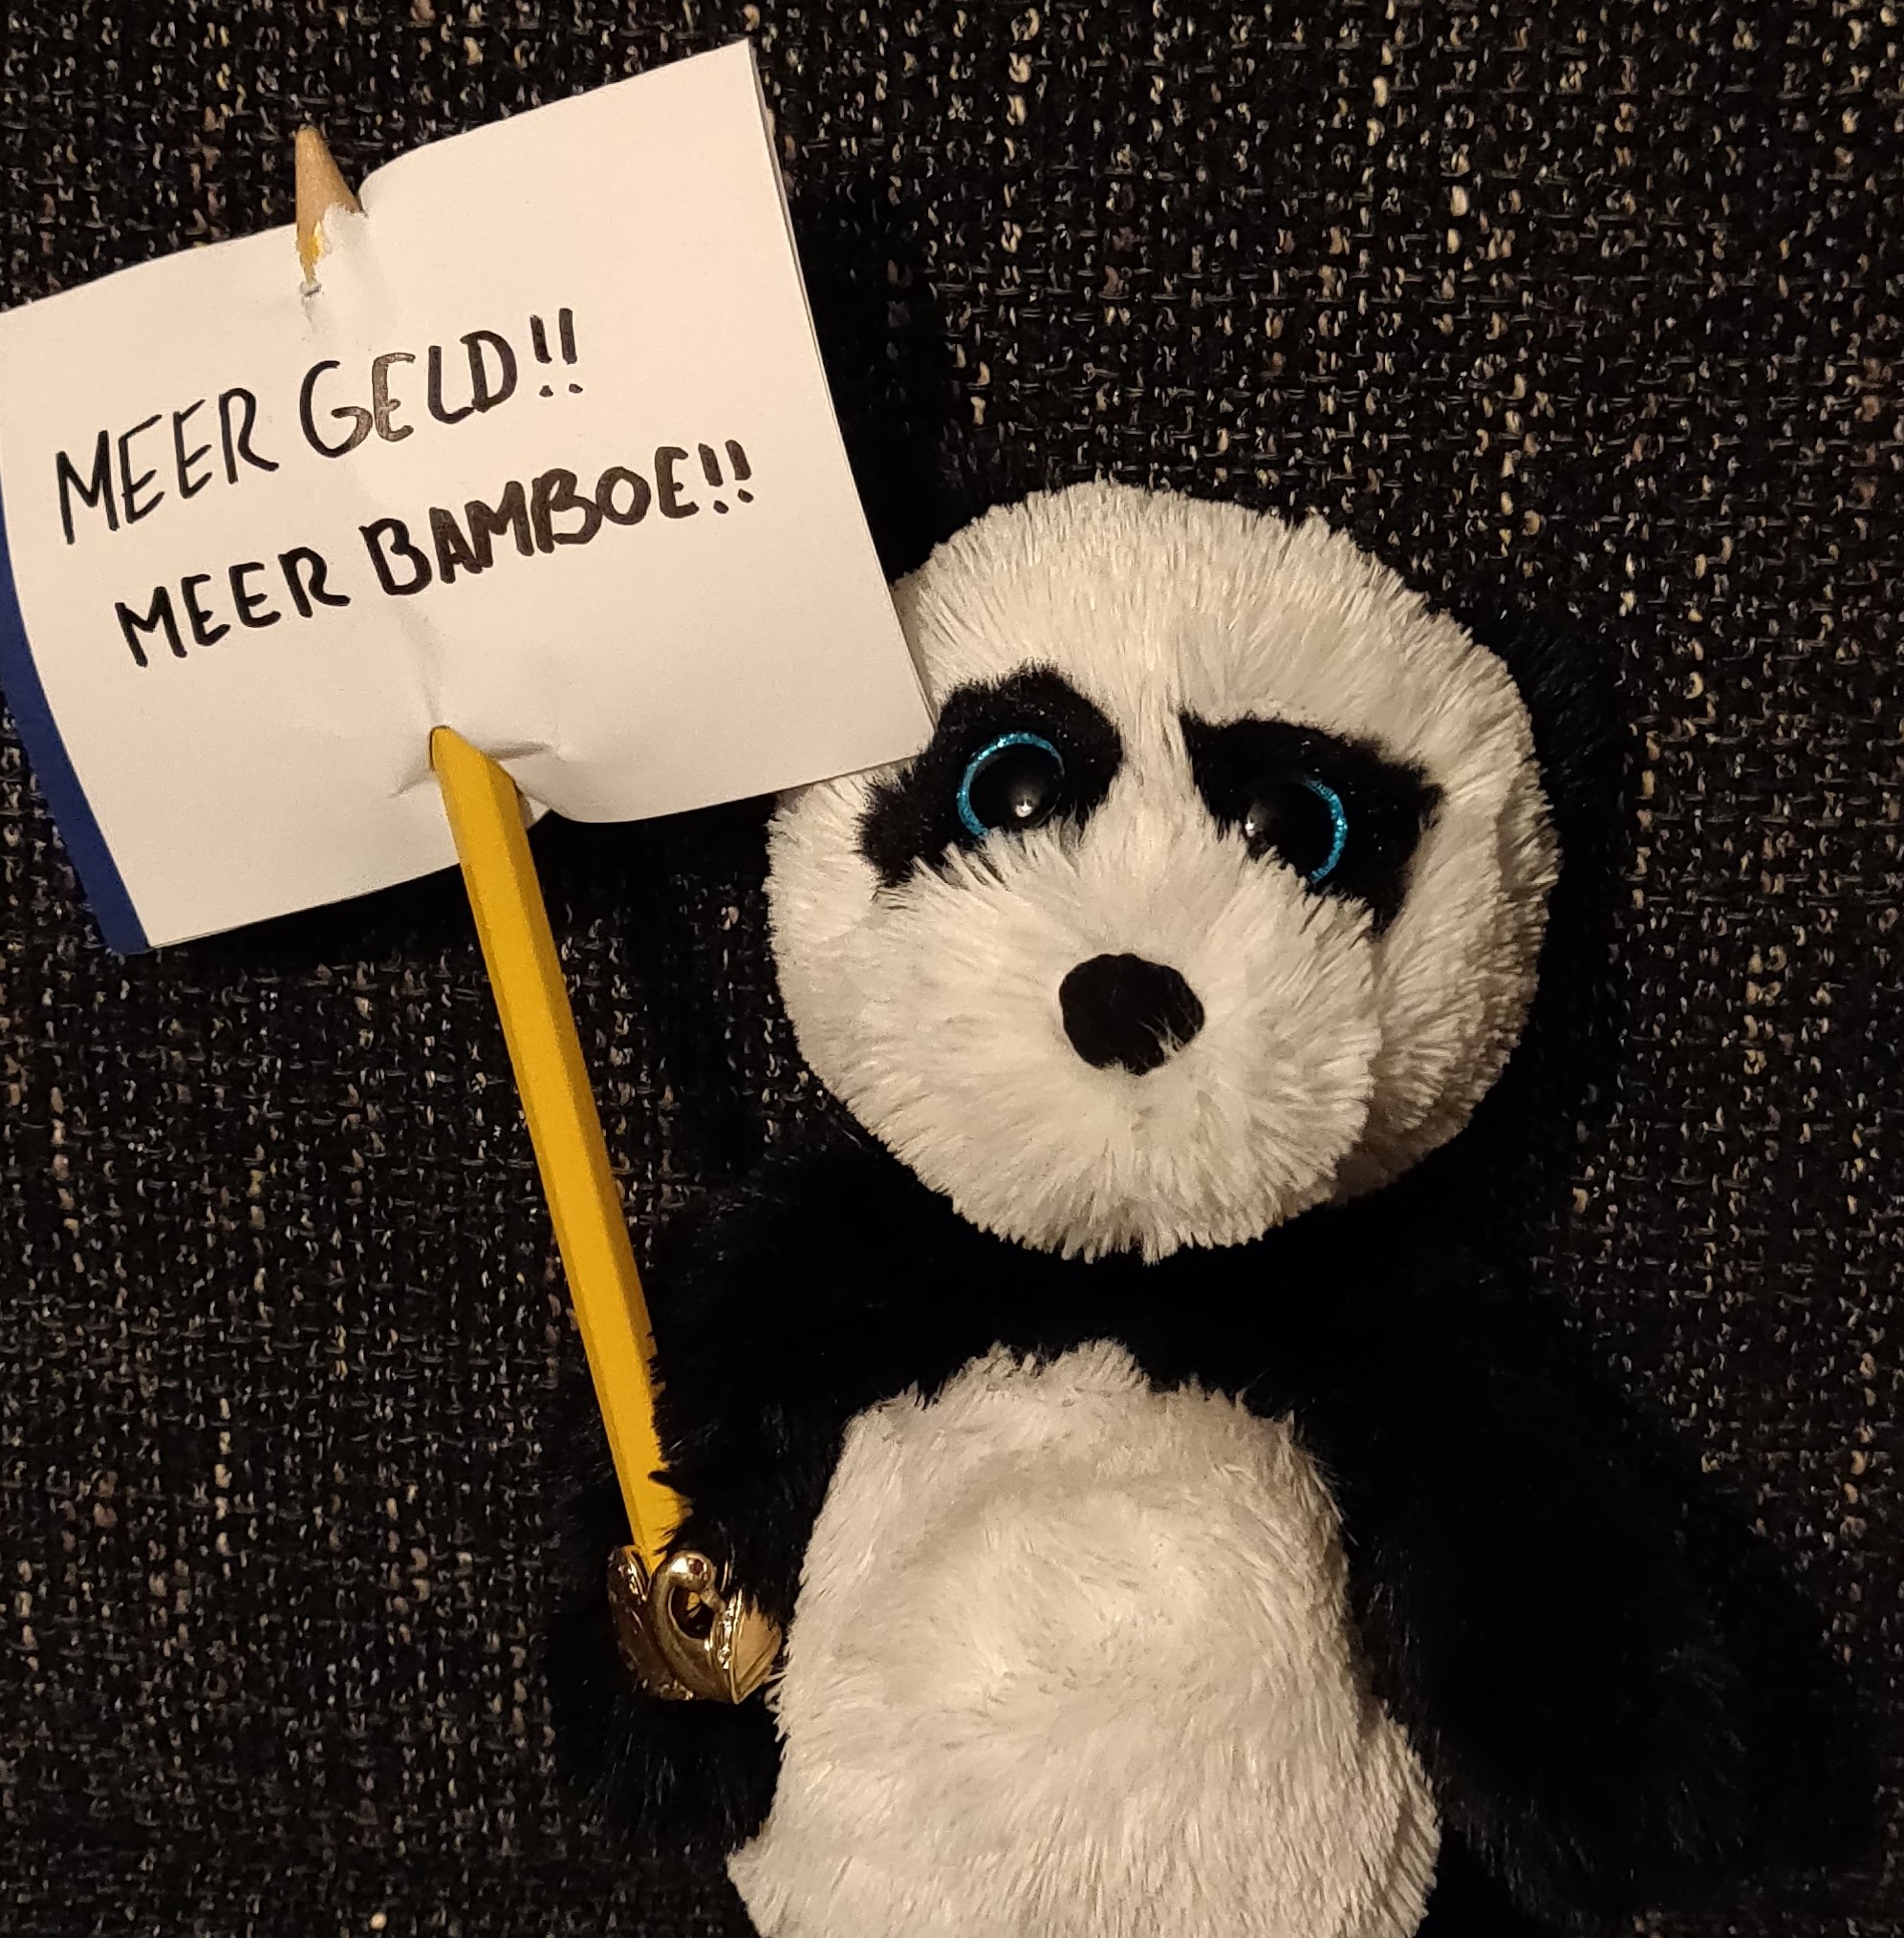 MEER GELD!!
MEER BAMBOE!!